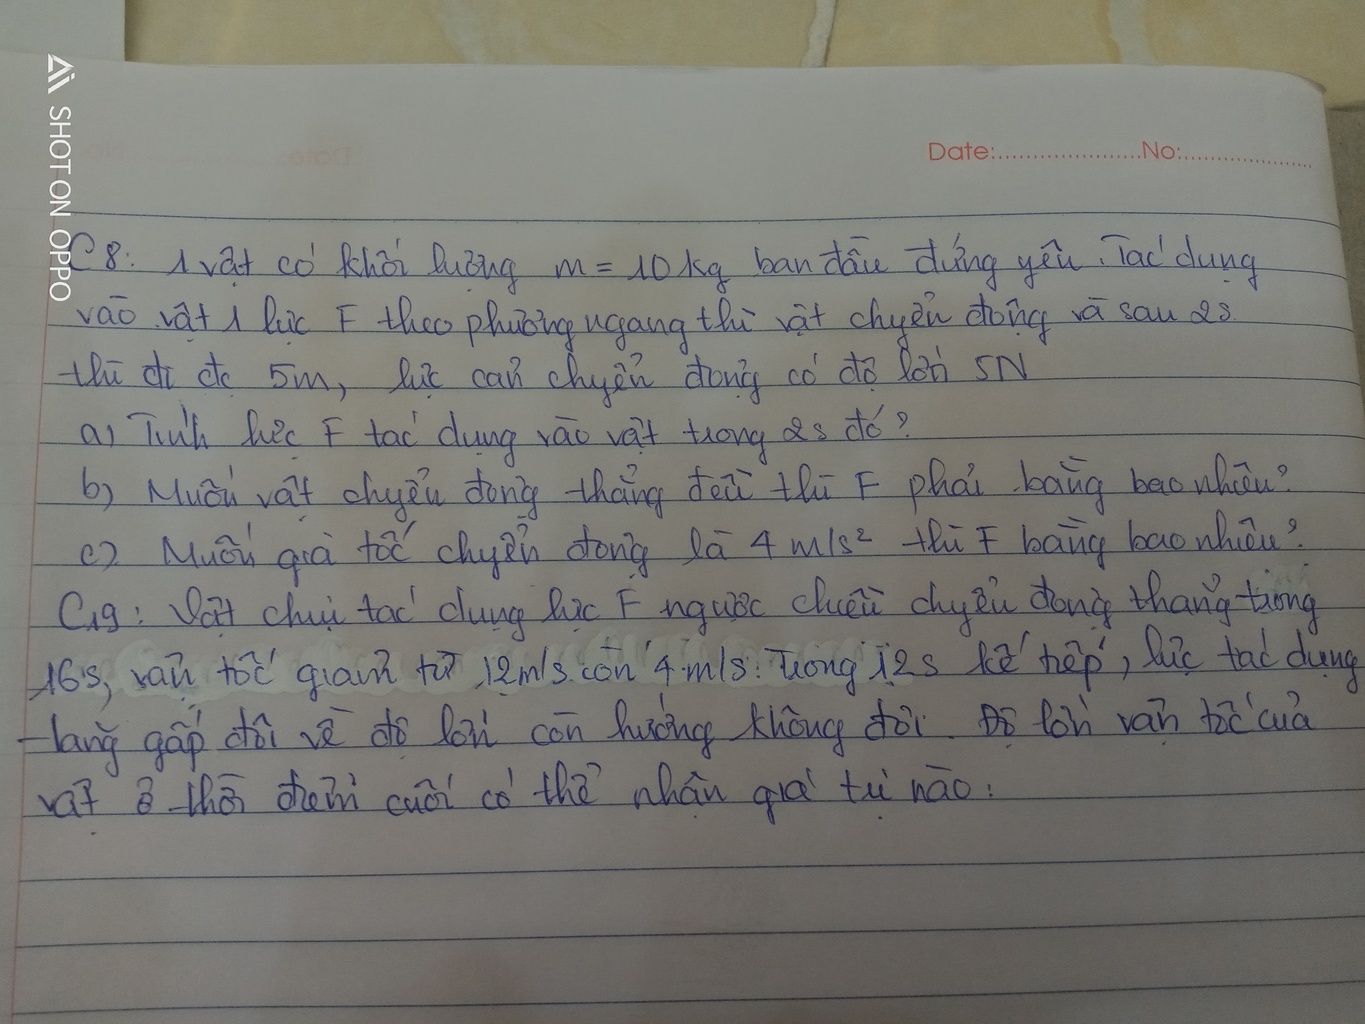 SHOT ON OPPO
Date:......................No:....................
C8: 1 vật có khối lượng m = 10 kg ban đầu đứng yên. Tác dụng
vào vật 1 lực F theo phương ngang thì vật chuyển động và sau 2s
thì đi đc 5m, lực cản chuyển động có độ lớn 5N
a) Tính lực F tác dụng vào vật trong 2s đó?
b) Muốn vật chuyển động thẳng đều thì F phải bằng bao nhiêu?
c) Muốn gia tốc chuyển động là 4 m/s² thì F bằng bao nhiêu?
C19: Vật chịu tác dụng lực F ngược chiều chuyển động thẳng trong
16s, vận tốc giảm từ 12m/s còn 4 m/s. Trong 12s kế tiếp, lực tác dụng
tăng gấp đôi về độ lớn còn hướng không đổi. Độ lớn vận tốc của
vật ở thời điểm cuối có thể nhận giá trị nào: